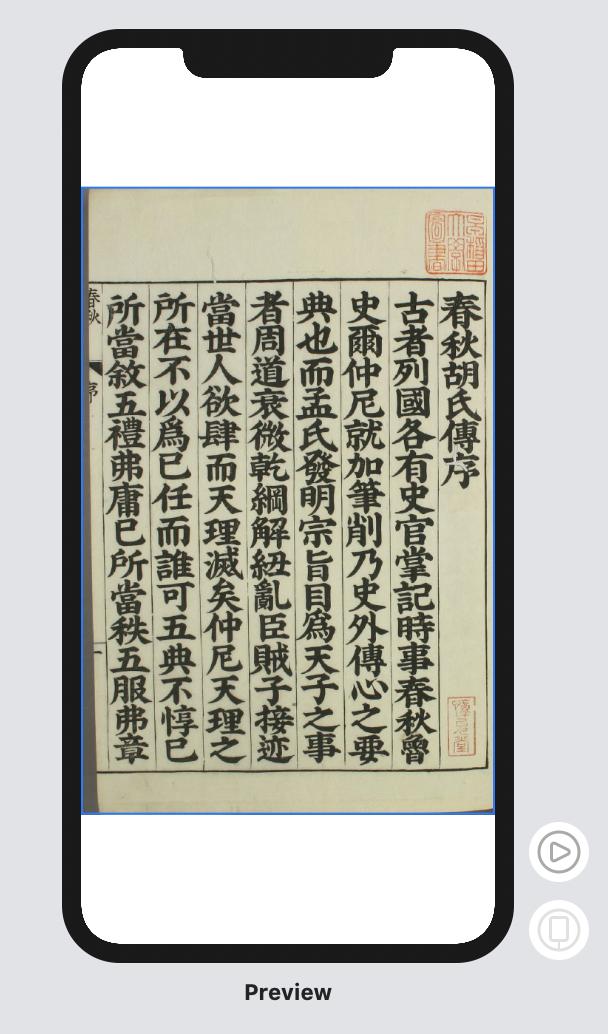 春秋胡氏傳序
古者列國各有史官掌記時事春秋魯
史爾仲尼就加筆削乃史外傳心之要
典也而孟氏發明宗旨目爲天子之事
者周道衰微乾綱解紐亂臣賊子接迹
當世人欲肆而天理滅矣仲尼天理之
所在不以爲已任而誰可五典不惇已
所當敘五禮弗庸已所當秩五服弗章
春秋
序
Preview